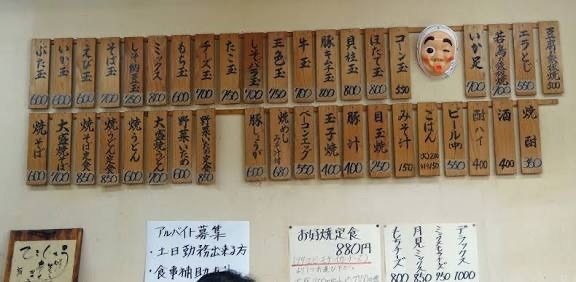 ぶた玉 600
いか玉 600
えび玉 700
そば玉 700
しそ納豆玉 750
ミックス 800
もち玉 600
チーズ玉 700
たこ玉 750
しそバラ玉 700
三色玉 750
牛玉 700
豚キムチ玉 800
貝柱玉 800
ほたて玉 800
コーン玉 550
いか足 700
エラとじ 550
焼そば 600
大盛焼そば 700
焼そば定食 850
焼うどん 600
大盛焼うどん 700
野菜いため 600
野菜いため定食 850
豚しょうが 600
焼めし みそ汁付 680
ベーコンエッグ 550
玉子焼 400
豚汁 400
目玉焼 250
みそ汁 150
ごはん
ビール(中) 550
酎ハイ 400
酒 400
焼酎 350
アルバイト募集
・土日勤務出来る方
・食事補助
お好焼定食
880円
デラックス 1000
月見ミックス 850
もちチーズ 800